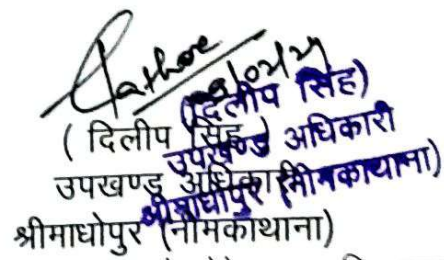 Rathore
(दिलीप सिंह)
उपखण्ड अधिकारी
श्रीमाधोपुर (नीमकाथाना)
( दिलीप सिंह )
उपखण्ड अधिकारी
श्रीमाधोपुर (नीमकाथाना)